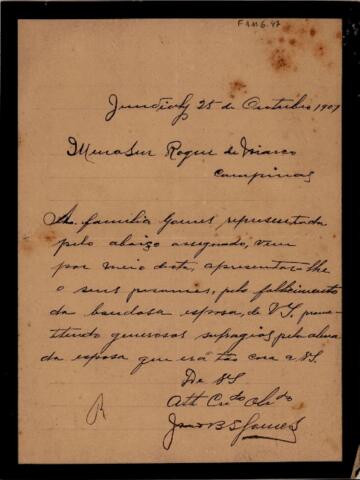 F 1.11.6.47
Jundiahy 25 de Outubro 1907
Roque de Marco
Campinas
A familia Gomes representada
pelo abaixo assegnado, vem
por meio desta, apresentar-lhe
o seus pesames, pelo fallecimento
da bondosa esposa, de V.S. prome-
ttendo generosos sufragios pela alma
da esposa que era tão cara a VS.
De VS
Att Crdo Obdo
Gomes
R